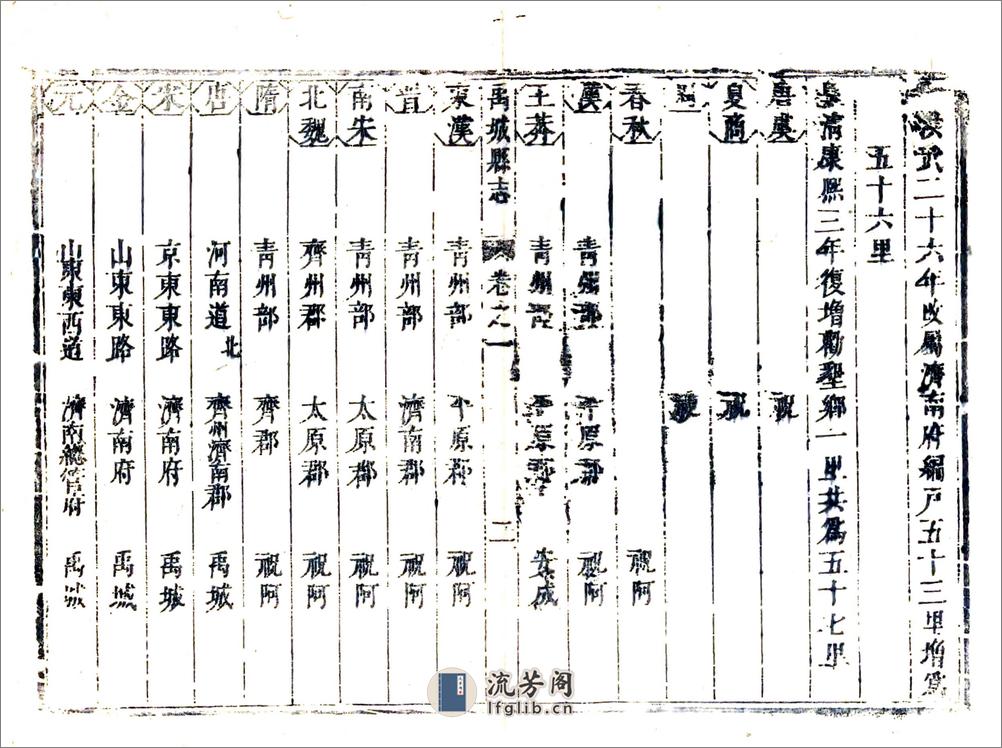 洪武二十六年改屬濟南府編戶五十三里增爲
五十六里
皇清康熙三年復增勸聖鄉一里共爲五十七里
唐虞 祝
夏商 祝
祝
春秋 祝阿
漢 青州部 平原郡 祝阿
王莽 青州部 平原郡 安成
禹城縣志 卷之一 二
東漢 青州部 平原郡 祝阿
晉 青州部 濟南郡 祝阿
南宋 青州部 太原郡 祝阿
北魏 齊州郡 太原郡 祝阿
隋 青州部 齊郡 祝阿
唐 河南道 北 齊州濟南郡 禹城
宋 京東東路 濟南府 禹城
金 山東東路 濟南府 禹城
元 山東東西道 濟南總管府 禹城
流芳阁
lfglib.cn